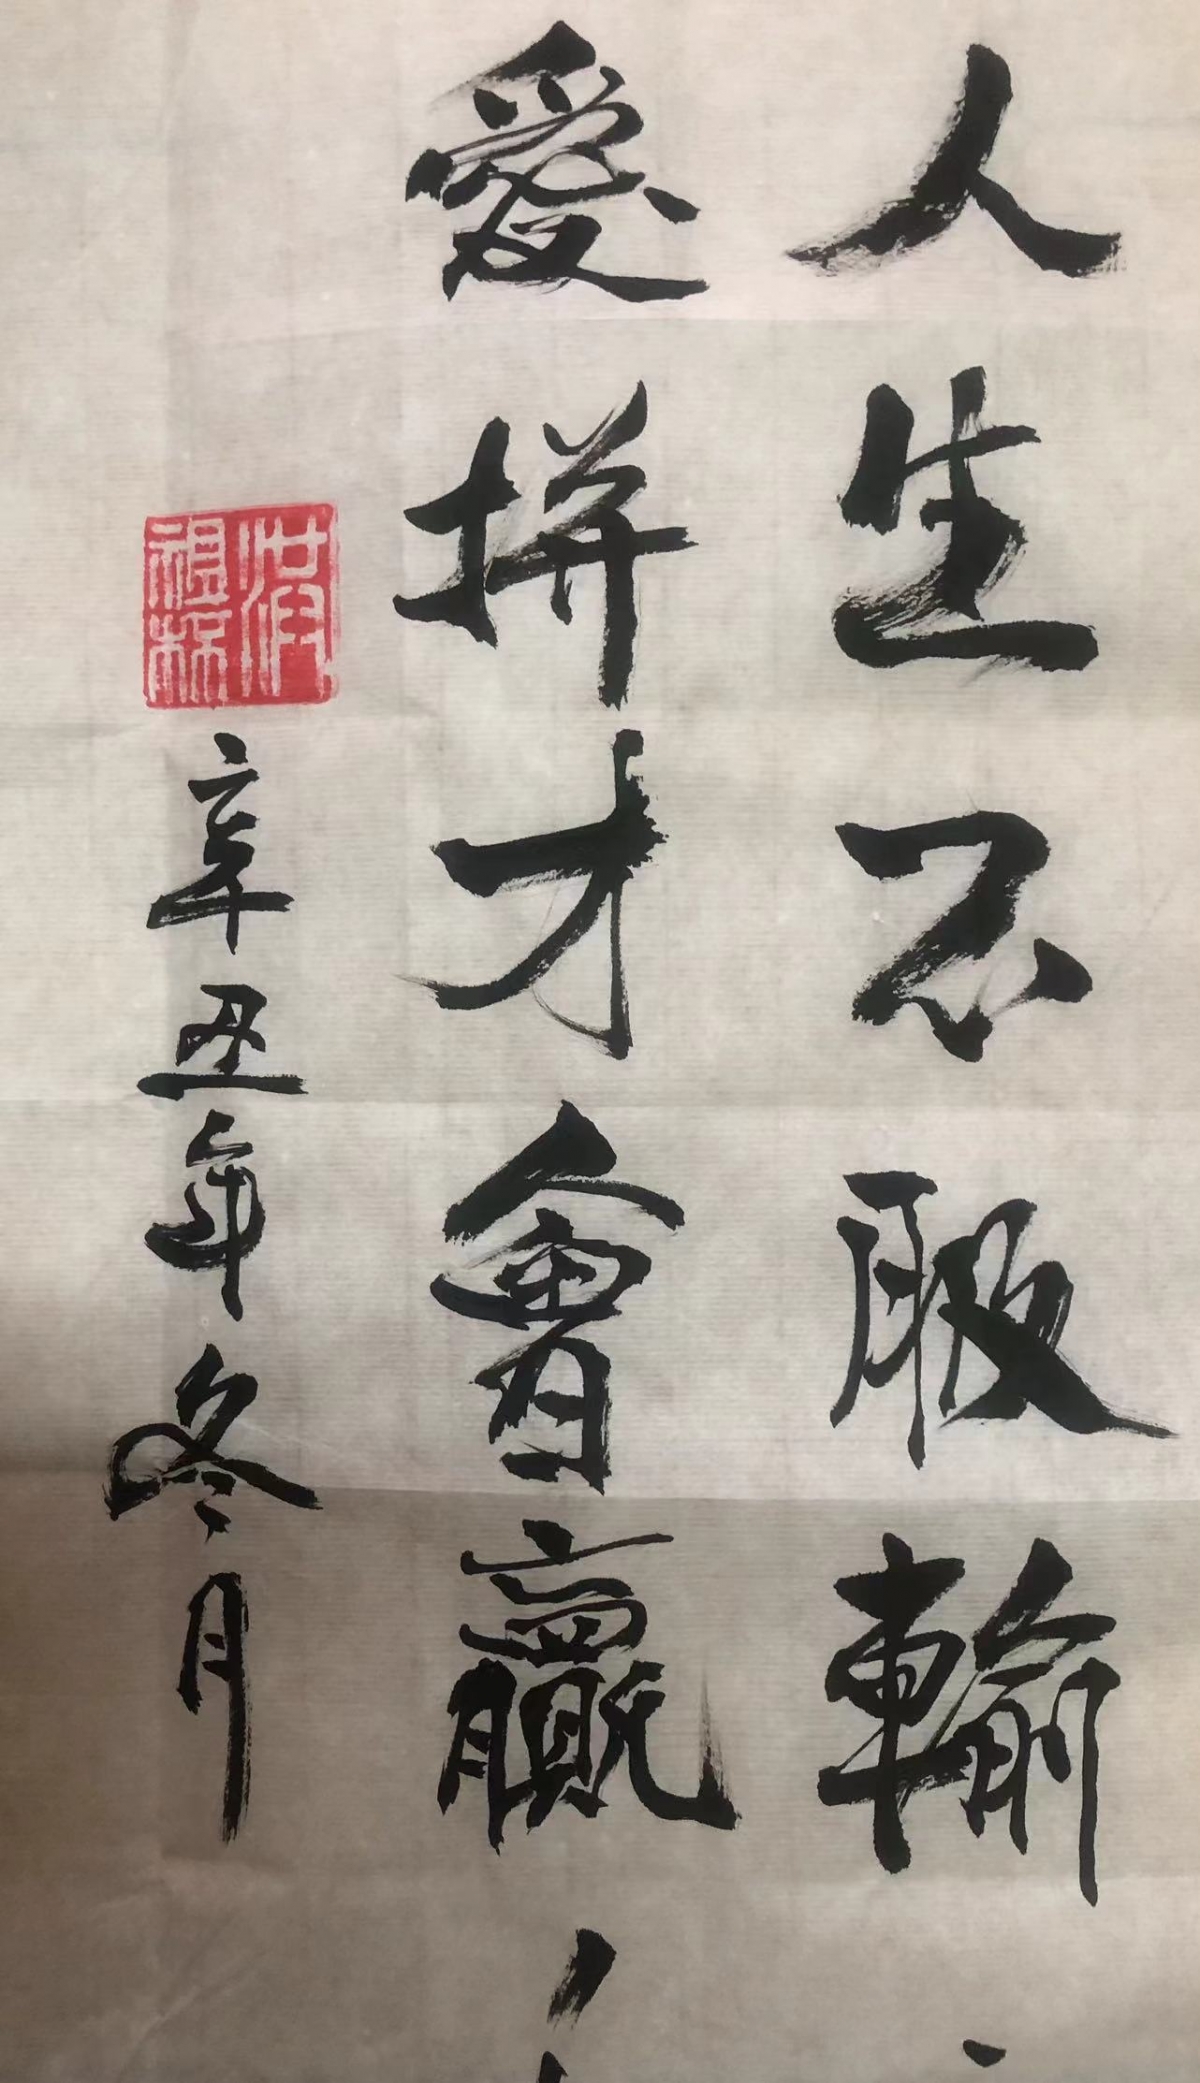 人生不服輸
愛拼才會贏
辛丑年冬月